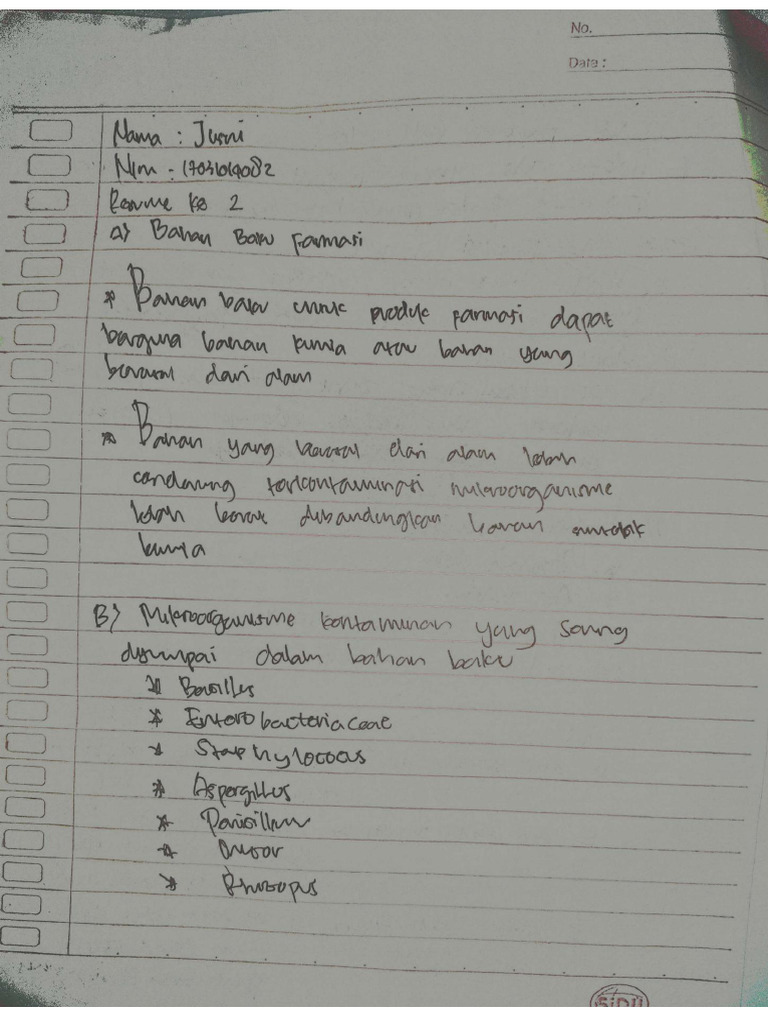 No.
Date:
Nama : Jusni
Nim :
Resume ke 2
A) Bahan Baku Farmasi
* Bahan baku untuk produk farmasi dapat
berguna bahan kimia atau bahan yang
berasal dari alam
* Bahan yang berasal dari alam lebih
cenderung terkontaminasi mikroorganisme
lebih berat dibandingkan bahan sintetik
kimia
B) Mikroorganisme kontaminan yang sering
dijumpai dalam bahan baku
* Basillus
* Enterobacteriaceae
* Staphylococus
* Aspergillus
* Penisillium
* Musor
* Rhizopus
SIDU